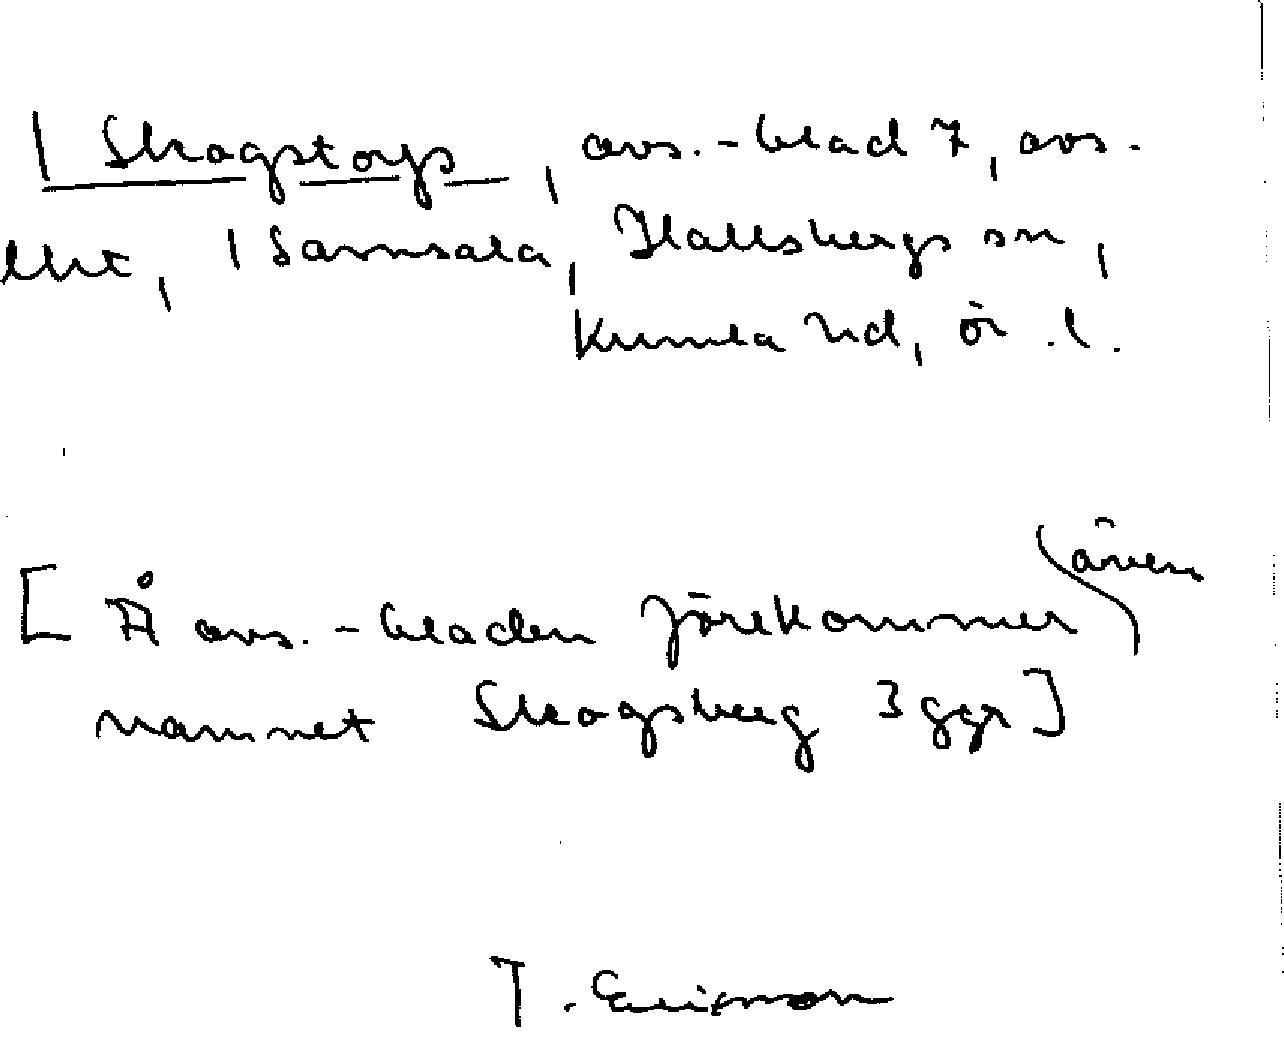 | Skogstorp, avs.-blad 7, avs.-
lht, | Samsala, Hallsbergs sn,
Kumla hd, ör. l.
även
[Å avs.-bladen förekommer
namnet Skogsberg 3 ggr]
T. Ericsson